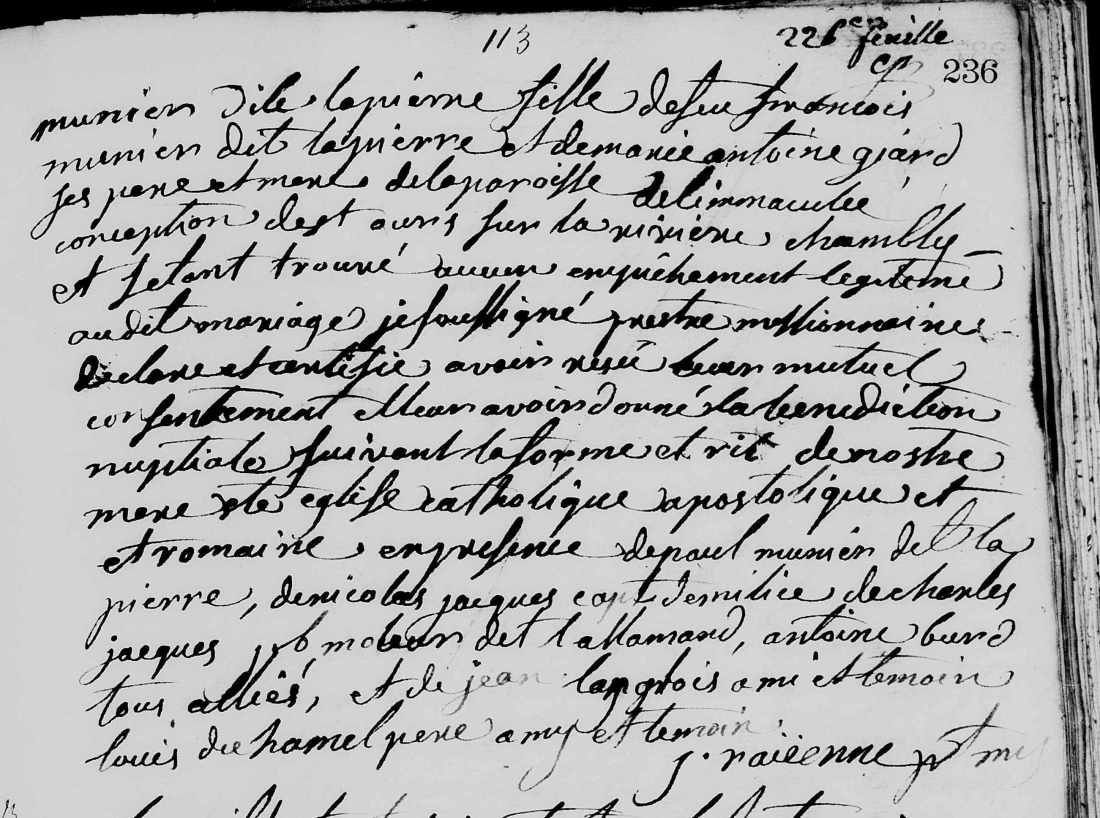 113
226e feuille
236
munier dite lapierre fille defeu francois
munier dit lapierre et demarie antoine giard
ses pere et mere delaparoisse delimmaculée
conception dest ours sur la riviere chambly
et setant trouvé aucun empêchement legiteme
audit mariage jesoussigné prestre missionnaire
declare et certifie avoir resü leur mutuel
consentement et leur avoir donné la benediction
nuptiale suivant la forme et rit denostre
mere ste eglise catholique apostolique et
et romaine en presence depaul munier dit la
pierre, denicolas jacques capt demilice decharles
jacques dit lallamand, antoine
tous alliés, et de jean langlois ami et temoin
louis duhamel pere amy et temoin.